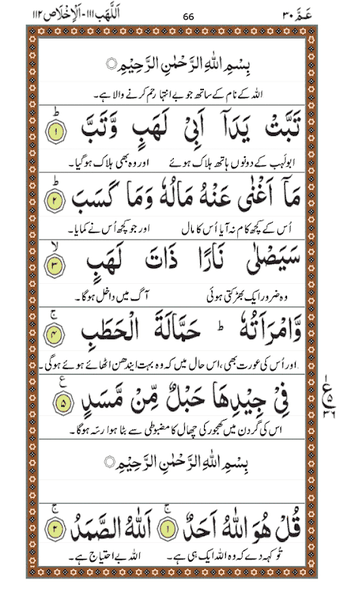 عَمَّ ٣٠ 66 اَللَّهَب ١١١-اَلْاِخْلَاص ١١٢
بِسْمِ اللّٰهِ الرَّحْمٰنِ الرَّحِيْمِ
اللہ کے نام کے ساتھ جو بے انتہا رحم کرنے والا ہے۔
تَبَّتْ يَدَآ اَبِيْ لَهَبٍ وَّتَبَّ ؕ ۱
ابولہب کے دونوں ہاتھ ہلاک ہوئے اور وہ بھی ہلاک ہوگیا۔
مَآ اَغْنٰى عَنْهُ مَالُهٗ وَمَا كَسَبَ ؕ ۲
اُس کے کچھ کام نہ آیا اُس کا مال اور جو کچھ اُس نے کمایا۔
سَيَصْلٰى نَارًا ذَاتَ لَهَبٍ ۙ ۳
وہ ضرور ایک بھڑکتی ہوئی آگ میں داخل ہوگا۔
وَّامْرَاَتُهٗ ؕ حَمَّالَةَ الْحَطَبِ ۚ ۴
اور اُس کی عورت بھی، اس حال میں کہ وہ بہت ایندھن اٹھائے ہوئے ہوگی۔
فِيْ جِيْدِهَا حَبْلٌ مِّنْ مَّسَدٍ ۵ ع
اس کی گردن میں کھجور کی چھال کا مضبوطی سے بٹا ہوا رسہ ہوگا۔
بِسْمِ اللّٰهِ الرَّحْمٰنِ الرَّحِيْمِ
قُلْ هُوَ اللّٰهُ اَحَدٌ ۚ ۱ اَللّٰهُ الصَّمَدُ ۚ ۲
تُو کہہ دے کہ وہ اللہ ایک ہی ہے۔ اللہ بے احتیاج ہے۔